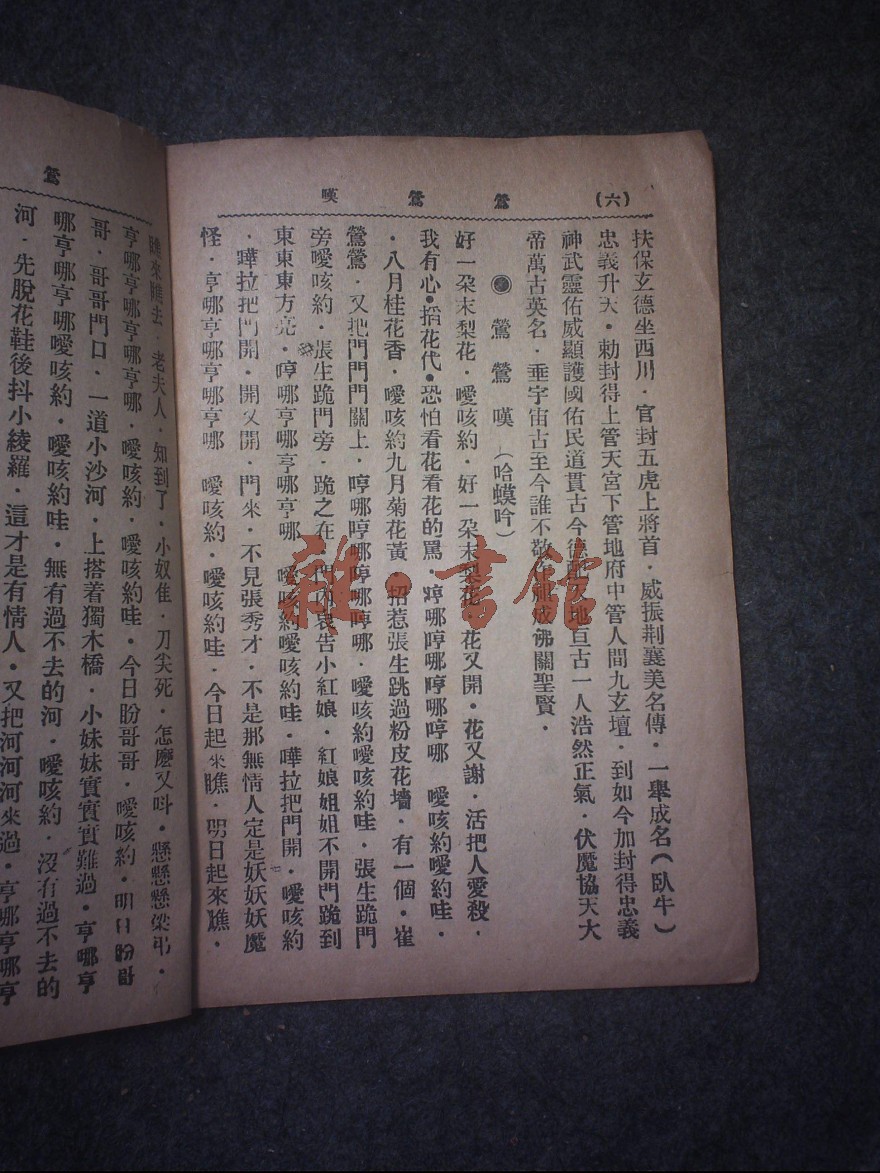 (六)
鶯鶯嘆
扶保玄德坐西川．官封五虎上將首．威振荆襄美名傳．一舉成名(臥牛)
忠義升天．勅封得上管天宮下管地府中管人間九玄壇．到如今加封得忠義
神武靈佑威顯護國佑民道貫古今德配天地亘古一人浩然正氣．伏魔協天大
帝萬古英名．垂宇宙古至今誰不敬 成佛關聖賢．
鶯鶯嘆 (哈蟆吟)
好一朶末梨花．噯咳約．好一朶末梨花．花又開．花又謝．活把人愛殺．
我有心．掐花代．恐怕看花看花的罵．哼哪哼哪哼哪哼哪 噯咳約噯約哇．
．八月桂花香．噯咳約九月菊花黃．招惹張生跳過粉皮花墻．有一個．崔
鶯鶯．又把門門門關上．哼哪哼哪哼哪哼哪．噯咳約噯咳約哇．張生跪門
旁噯咳約．張生跪門旁．跪之在 門內哀告小紅娘．紅娘姐姐不開門跪到
東東東方亮．哼哪亨哪亨哪亨哪 噯咳約噯咳約哇．嘩拉把門開．噯咳約
．嘩拉把門開．開又開．門來．不見張秀才．不是那無情人定是妖妖妖魔
怪．亨哪亨哪亨哪亨哪 噯咳約．噯咳約哇．今日起來瞧．明日起來瞧．
鶯
瞧來瞧去．老夫人．知到了．小奴隹．刀尖死．怎麽又呌．懸懸懸梁吊．
亨哪亨哪亨哪亨哪．噯咳約．噯咳約哇．今日盼哥哥．噯咳約．明日盼哥
哥．哥哥門口．一道小沙河．上搭着獨木橋．小妹妹實實實難過．亨哪亨
哪亨哪亨哪噯咳約．噯咳約哇．無有過不去的河．噯咳約．沒有過不去的
河．先脫花鞋後抖小綾羅．這才是有情人．又把河河河來過．亨哪亨哪亨
雜．書館